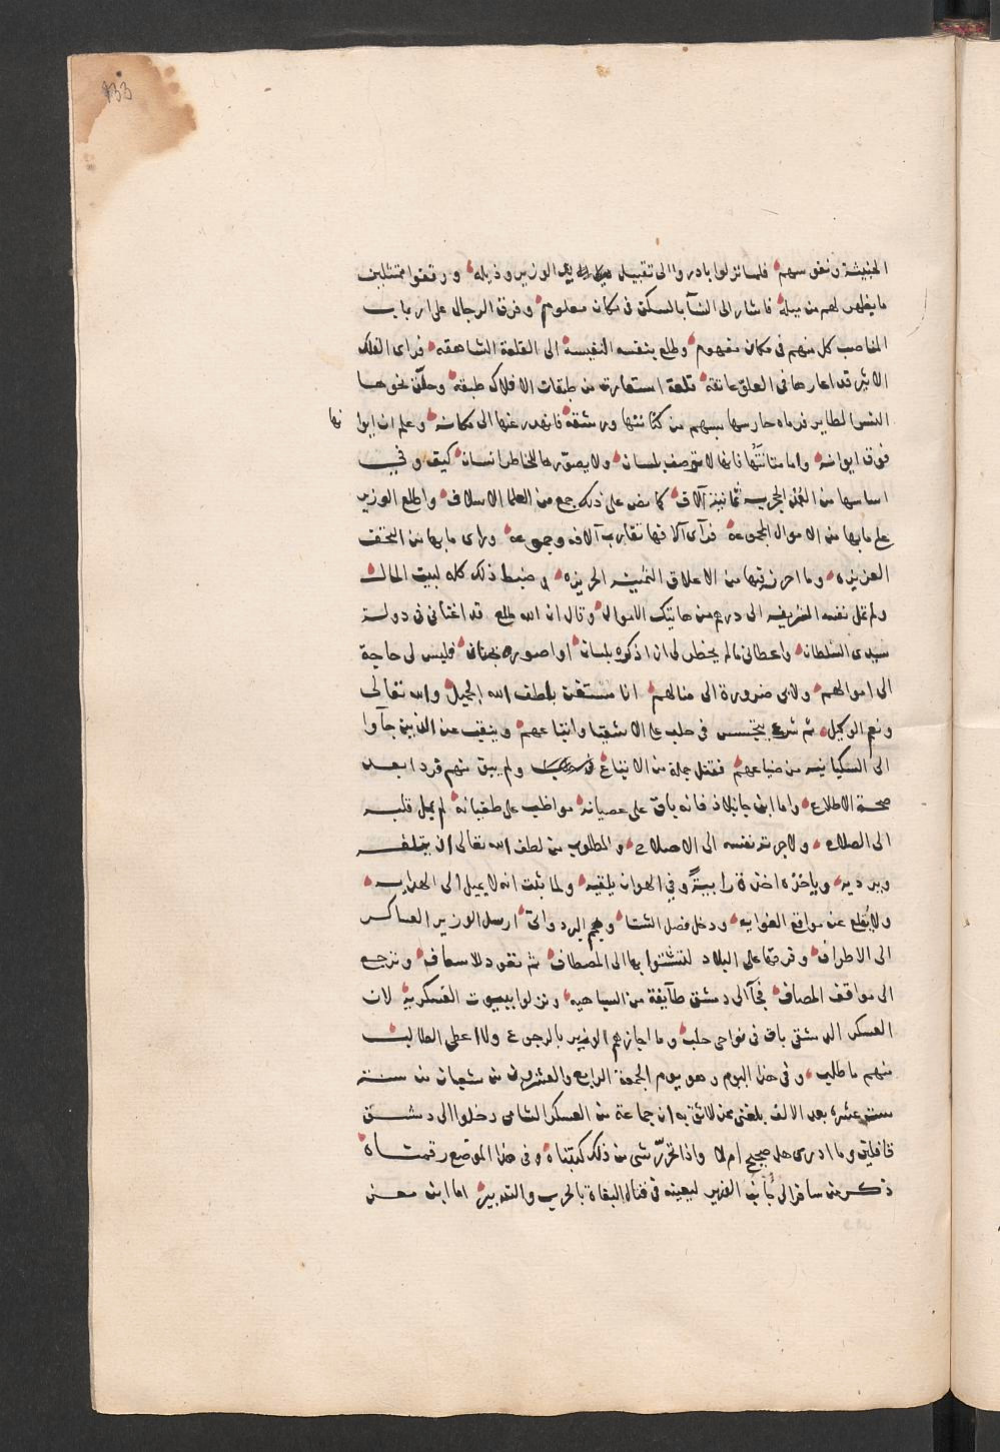 133
الخبيثة ونفوسهم فلما نزلوا بادروا الى تقبيل يد الوزير وذيله ووقفوا ممتثلين
ما يظهر لهم من ميله فاشار الى النسآ بالسكن فى مكان معلوم وفرق الرجال على ارباب
المناصب كل منهم فى مكان مفهوم وطلع بنفسه النفيسة الى القلعة الشاهقه فراى الفلك
الاثير قد اعارها فى العلو عاتقه قلعة استعارت من طبقات الافلاك طبقة وحلق نحوها
النسر الطاير فرماه حارسها بسهم من كنانتها ورشقه فانحدر عنها الى مكانه وعلم ان ايوانها
فوق ايوانه واما متانتها فانها لا توصف بلسان ولا يصورها لخاطر انسان كيف وفى
اساسها من العمد الحجرية ثمانية آلاف كما نص على ذلك جمع من العلما الاسلاف واطلع الوزير
على ما بها من الاموال المجموعة فرآى آلافها تقارب آلاف ومجموعة وراى ما بها من التحف
العزيزه وما احرز فيها من الاعلاق الثمينه الحريزه وضبط ذلك كله لبيت المال
ولم تمل نفسه الشريفه الى درهم من هاتيك الاموال وقال ان الله قد اغنانى فى دولة
سيدى السلطان واعطانى ما لم يخطر لى ان اذكره بلسان او اصوره بجنان فليس لى حاجة
الى اموالهم ولا بى ضرورة الى منالهم انا مستغن بلطف الله الجميل والله تعالى
ونعم الوكيل ثم شرع يتجسس فى حلب على الاشقيا واتباعهم وينقب عن الذين جآوا
الى السكبانيه من ضياعهم فقتل جملة من الاتباع ولم يبق منهم فردا بعد
صحة الاطلاع واما ابن جانبلاذ فانه باق على عصيانه مواظب على طغيانه لم يمل قلبه
الى الصلاح ولا جرته نفسه الى الاصلاح والمطلوب من لطف الله تعالى ان يتلفه
ويرديه وياخذه اخذة رابيةً وفى الهوان يلقيه ولما ثبت انه لا يميل الى الهدايه
ولا يقلع عن مواقع الغوايه ودخل فصل الشتا وهجم البرد واتى ارسل الوزير العساكر
الى الاطراف وفرقها على البلاد لتشتوا بها الى المصطاف ثم تعود للاسعاف وترجع
الى مواقف المصاف فجآ الى دمشق طآيفة من السباهيه ونزلوا ببيوت العسكرية لان
العسكر الدمشقى باق فى نواحى حلب وما اجازهم الوزير بالرجوع ولا اعطى الطالب
منهم ما طلب وفى هذا اليوم وهو يوم الجمعة الرابع والعشرون من شعبان من سنة
ست عشره بعد الالف بلغنى ممن لا اثق به ان جماعة من العسكر الشامى دخلوا الى دمشق
قافلين وما ادرى هل صحيح ام لا واذا تحرر شى من ذلك كتبناه وفى هذا الموضع رقمناه
ذكر من سافر الى جانب الوزير ليعينه فى قتال البغاة بالحرب والتدبير اما ابن معن